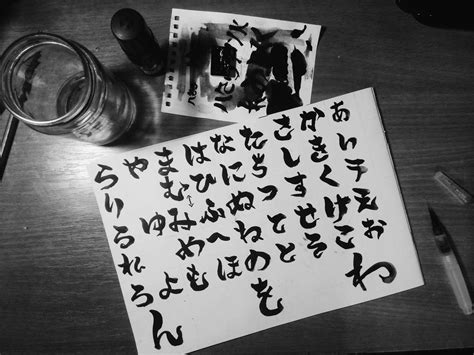 あいうえお
かきくけこ
さしすせそ
たちつてと
なにぬねの
はひふへほ
まむみめも
やゆよ
らりるれろ
わをん